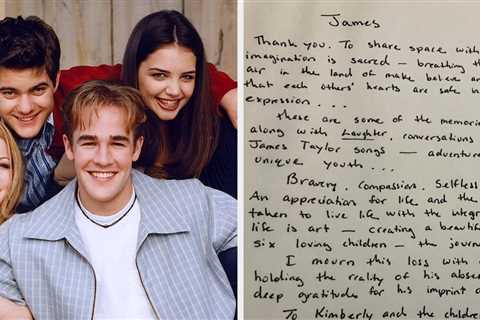 James
Thank you. To share space with
imagination is sacred — breathing the
air in the land of make believe an
that each others' hearts are safe in
expression...
these are some of the memorie
along with Laughter, conversations
James Taylor songs — adventure
unique youth...
Bravery. Compassion. Selfless
An appreciation for life and the
taken to live life with the integr
life is art — creating a beautif
six loving children — the journ
I mourn this loss with a
holding the reality of his absen
deep gratitudes for his imprint o
To Kimberly and the childre